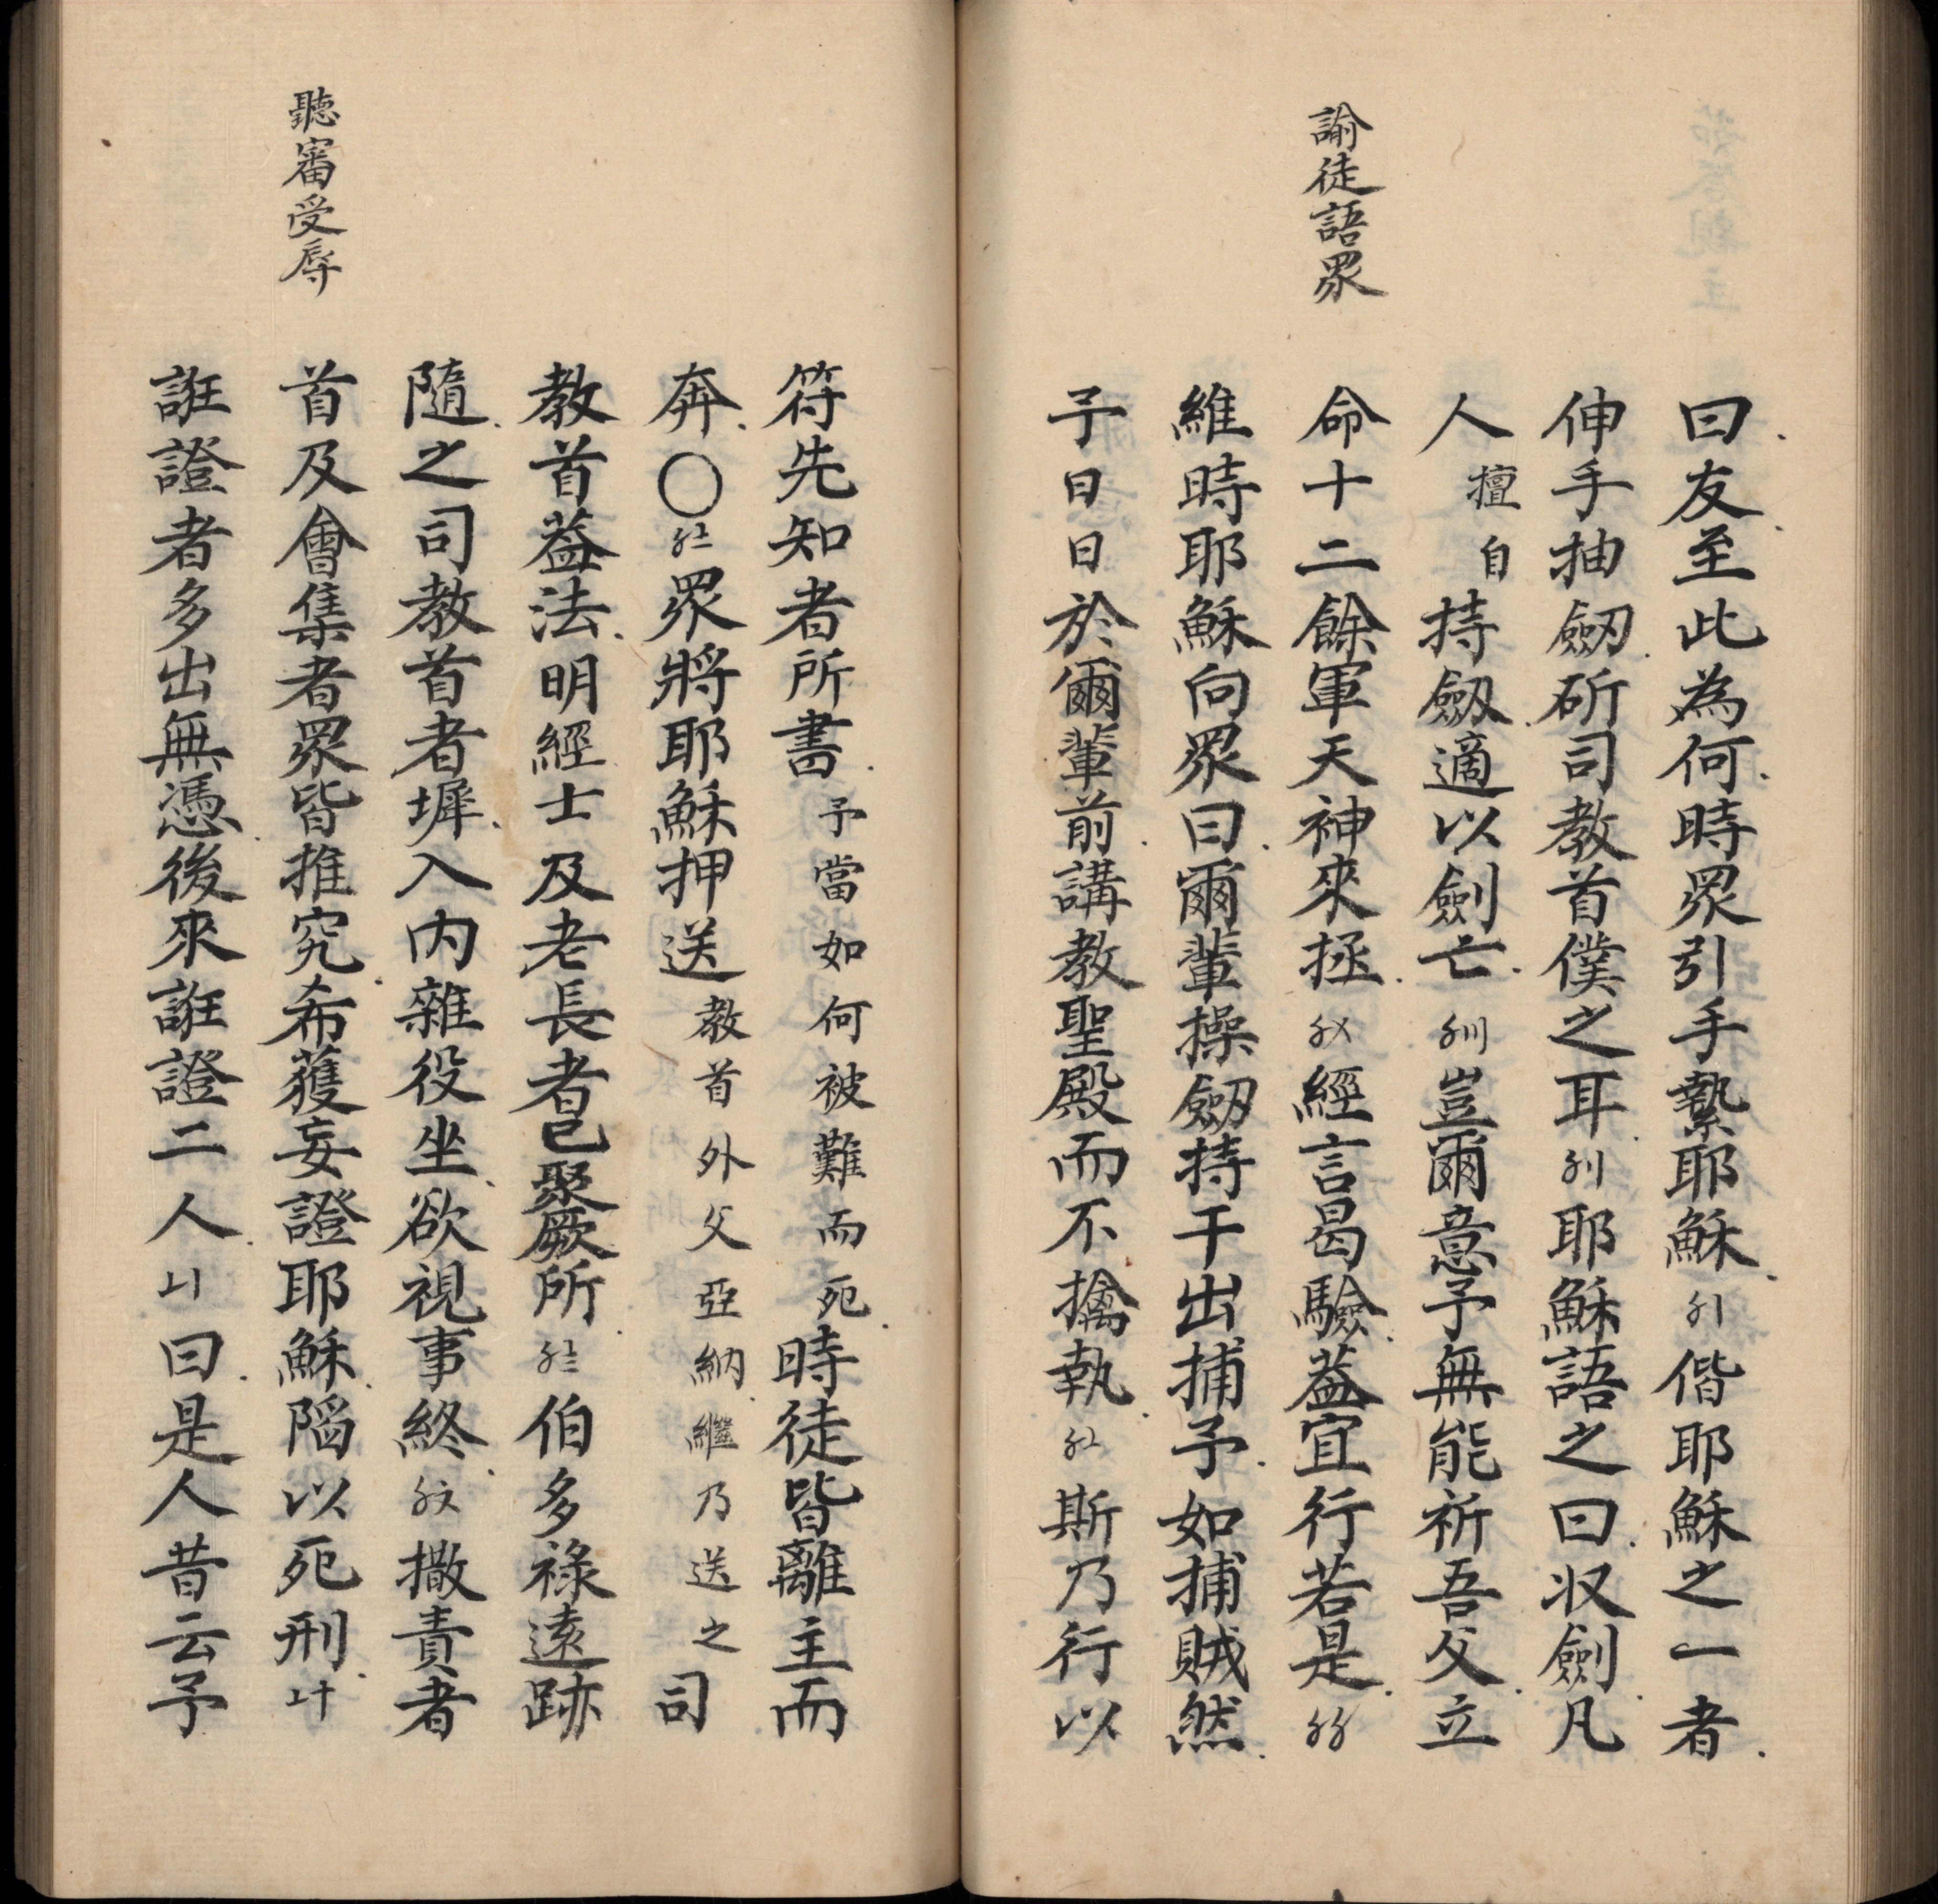 諭徒語眾
曰友至此為何時眾引手縶耶穌〥〡偕耶穌之一者
伸手抽劒斫司教首僕之耳〥〢耶穌語之曰收劍凡
人擅自持劔適以劍亡〥〣豈爾意予無能祈吾父立
命十二餘軍天神來拯〥〤經言曷驗葢宜行若是〥〥
維時耶穌向眾曰爾輩操劒持干出捕予如捕賊然
予日日於爾輩前講教聖殿而不擒執〥〦斯乃行以
聽審受辱
符先知者所書予當如何被難而死時徒皆離主而
奔〇〥〧眾將耶穌押送教首外父亞納繼乃送之司
教首葢法明經士及老長者已聚厥所〥〨伯多祿遠跡
隨之司教首者墀入内雜役坐欲視事終〥〩撒責者
首及會集者眾皆推究希獲妄證耶穌陷以死刑〦十
誑證者多出無憑後來誑證二人〦〡曰是人昔云予